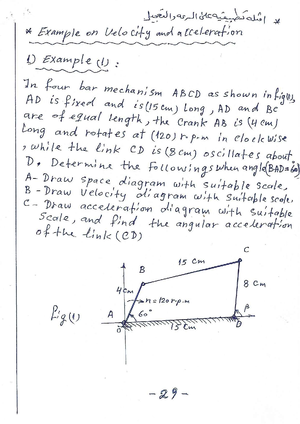 امثلة تطبيقية على السرعة والتعجيل
* Example on Velocity and acceleration
1) Example (1) :
In four bar mechanism ABCD as shown in fig(1),
AD is fixed and is (15 cm) long, AD and BC
are of equal length, the crank AB is (4 cm)
long and rotates at (120) r.p.m in clockwise
, while the link CD is (8 cm) oscillates about
D. Determine the followings when angle (BAD=60°)
A- Draw space diagram with suitable scale,
B- Draw Velocity diagram with suitable scale,
C- Draw acceleration diagram with suitable
scale, and find the angular acceleration
of the link (CD)
C
15 cm
B
4 cm
8 cm
n=120 r.p.m
fig(1)
A
60°
β
O
15 cm
D
- 29 -